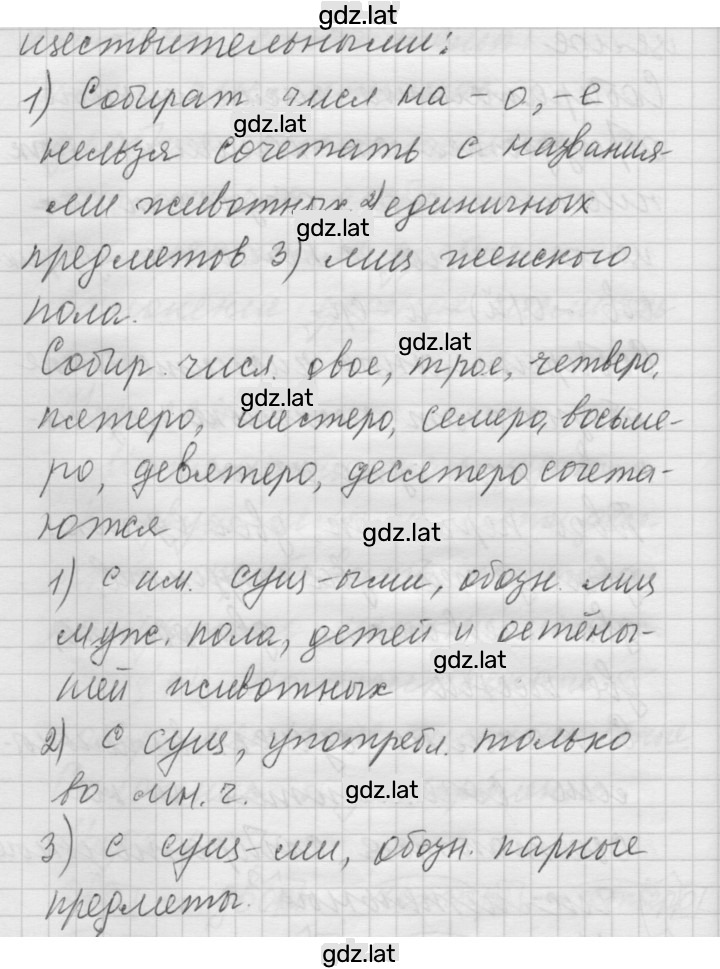 gdz.lat
ществительными:
1) Собират числ на -о, -е
gdz.lat
нельзя сочетать с названия-
ми животных 2) единичных
gdz.lat
предметов 3) лиц женского
пола.
gdz.lat
Собир. числ. двое, трое, четверо,
gdz.lat
пятеро, шестеро, семеро, восьме-
ро, девятеро, десятеро сочета-
ются
gdz.lat
1) с им. сущ-ыми, обозн. лиц
муж. пола, детей и детёны-
gdz.lat
шей животных
2) с сущ, употребл. только
во мн. ч.
gdz.lat
3) с сущ-ми, обозн. парные
предметы.
gdz.lat